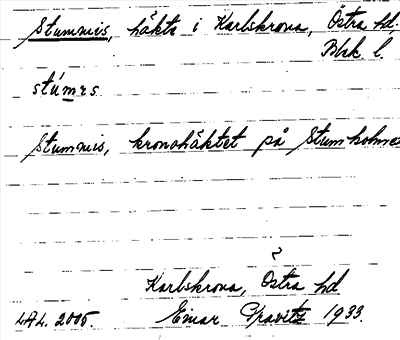 Stummis, häkte i Karlskrona, Östra hd.
Blek. l.
stúmɪs
Stummis, kronohäktet på Stumholmen
?
Karlskrona, Östra hd
LAL. 2005. Einar Gravitz 1933.